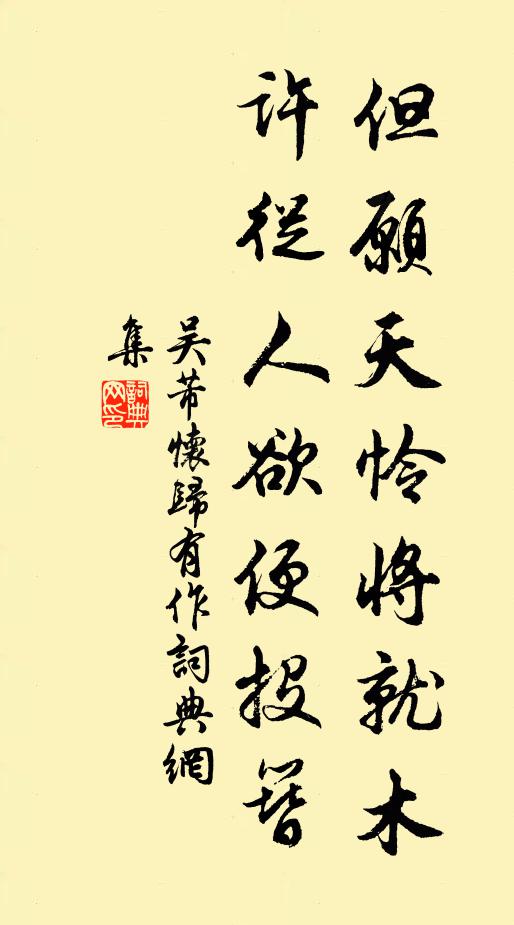 但願天怜將就木
許從人欲便投簪
吴芾懷歸有作詞典網
集
詞典網印